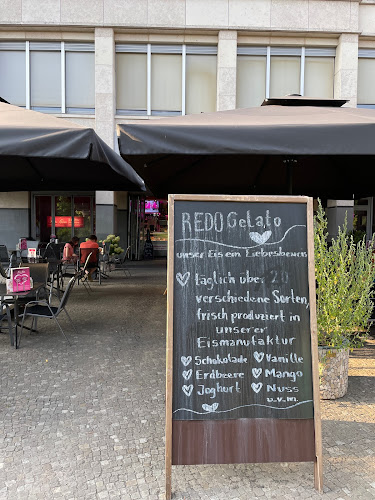 REDO Gelato
unser Eis ein Liebesbeweis
täglich über 20
verschiedene Sorten,
frisch produziert in
unserer
Eismanufaktur
Schokolade Vanille
Erdbeere Mango
Joghurt Nuss
u.v.m.